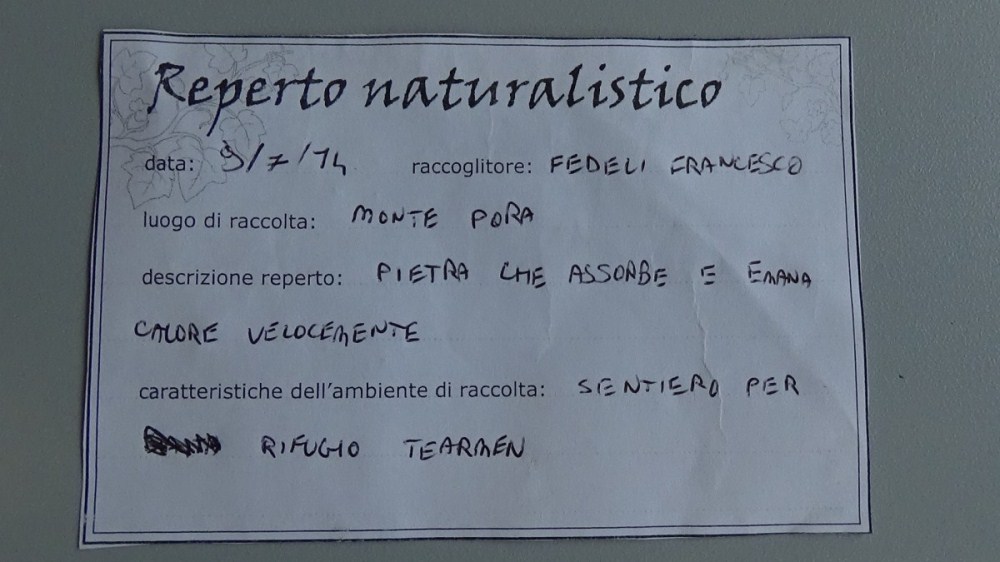 Reperto naturalistico
data: 9/7/14 raccoglitore: FEDELI FRANCESCO
luogo di raccolta: MONTE PORA
descrizione reperto: PIETRA CHE ASSORBE E EMANA
CALORE VELOCEMENTE
caratteristiche dell'ambiente di raccolta: SENTIERO PER
RIFUGIO TEARMEN